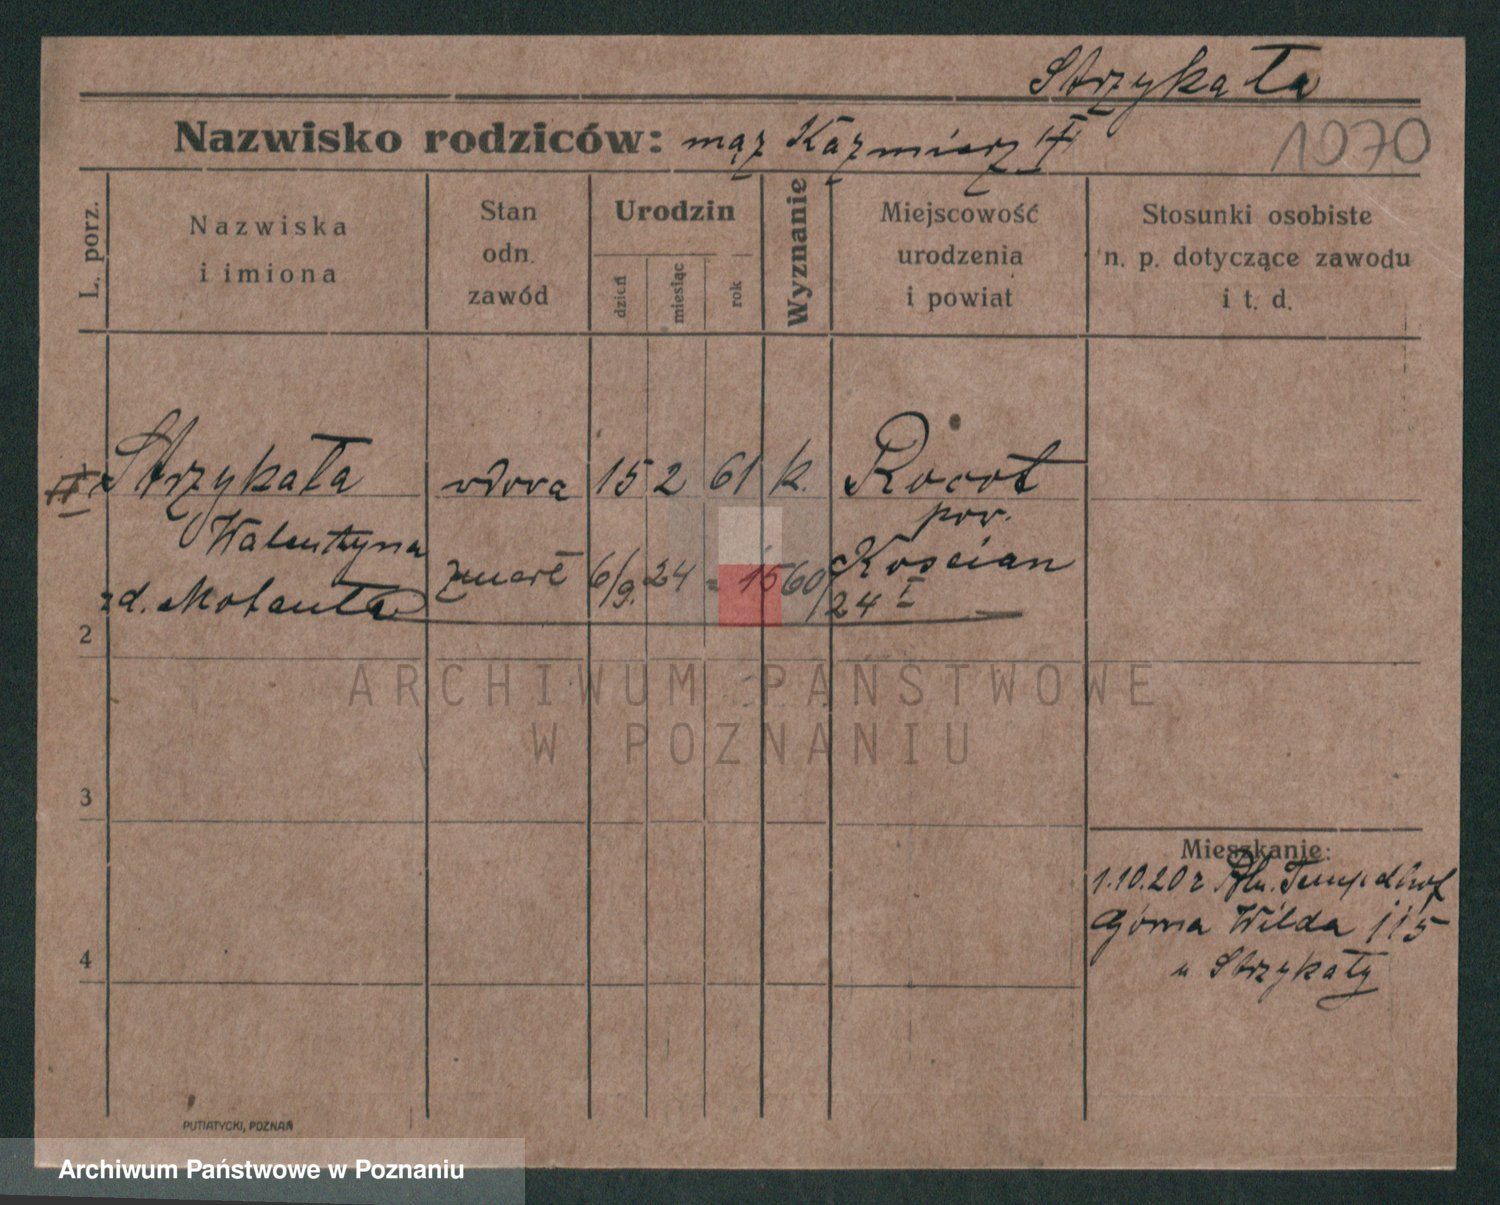 Strzykała
Nazwisko rodziców: mąż Kaźmierz II
1070
L. porz.
Nazwiska
i imiona
Stan
odn.
zawód
Urodzin
dzień
miesiąc
rok
Wyznanie
Miejscowość
urodzenia
i powiat
Stosunki osobiste
n. p. dotyczące zawodu
i t. d.
II Strzykała wdowa 15 2 61 k. Rocot
Walentyna pow.
zmarł 6/9. 24 = 1560/24 I Kościan
zd.
2
ARCHIWUM PAŃSTWOWE
W POZNANIU
3
Mieszkanie:
1.10.20 z Bln. Tempelhof
Górna Wilda 115
u Strzykały
4
PUTIATYCKI, POZNAŃ
Archiwum Państwowe w Poznaniu